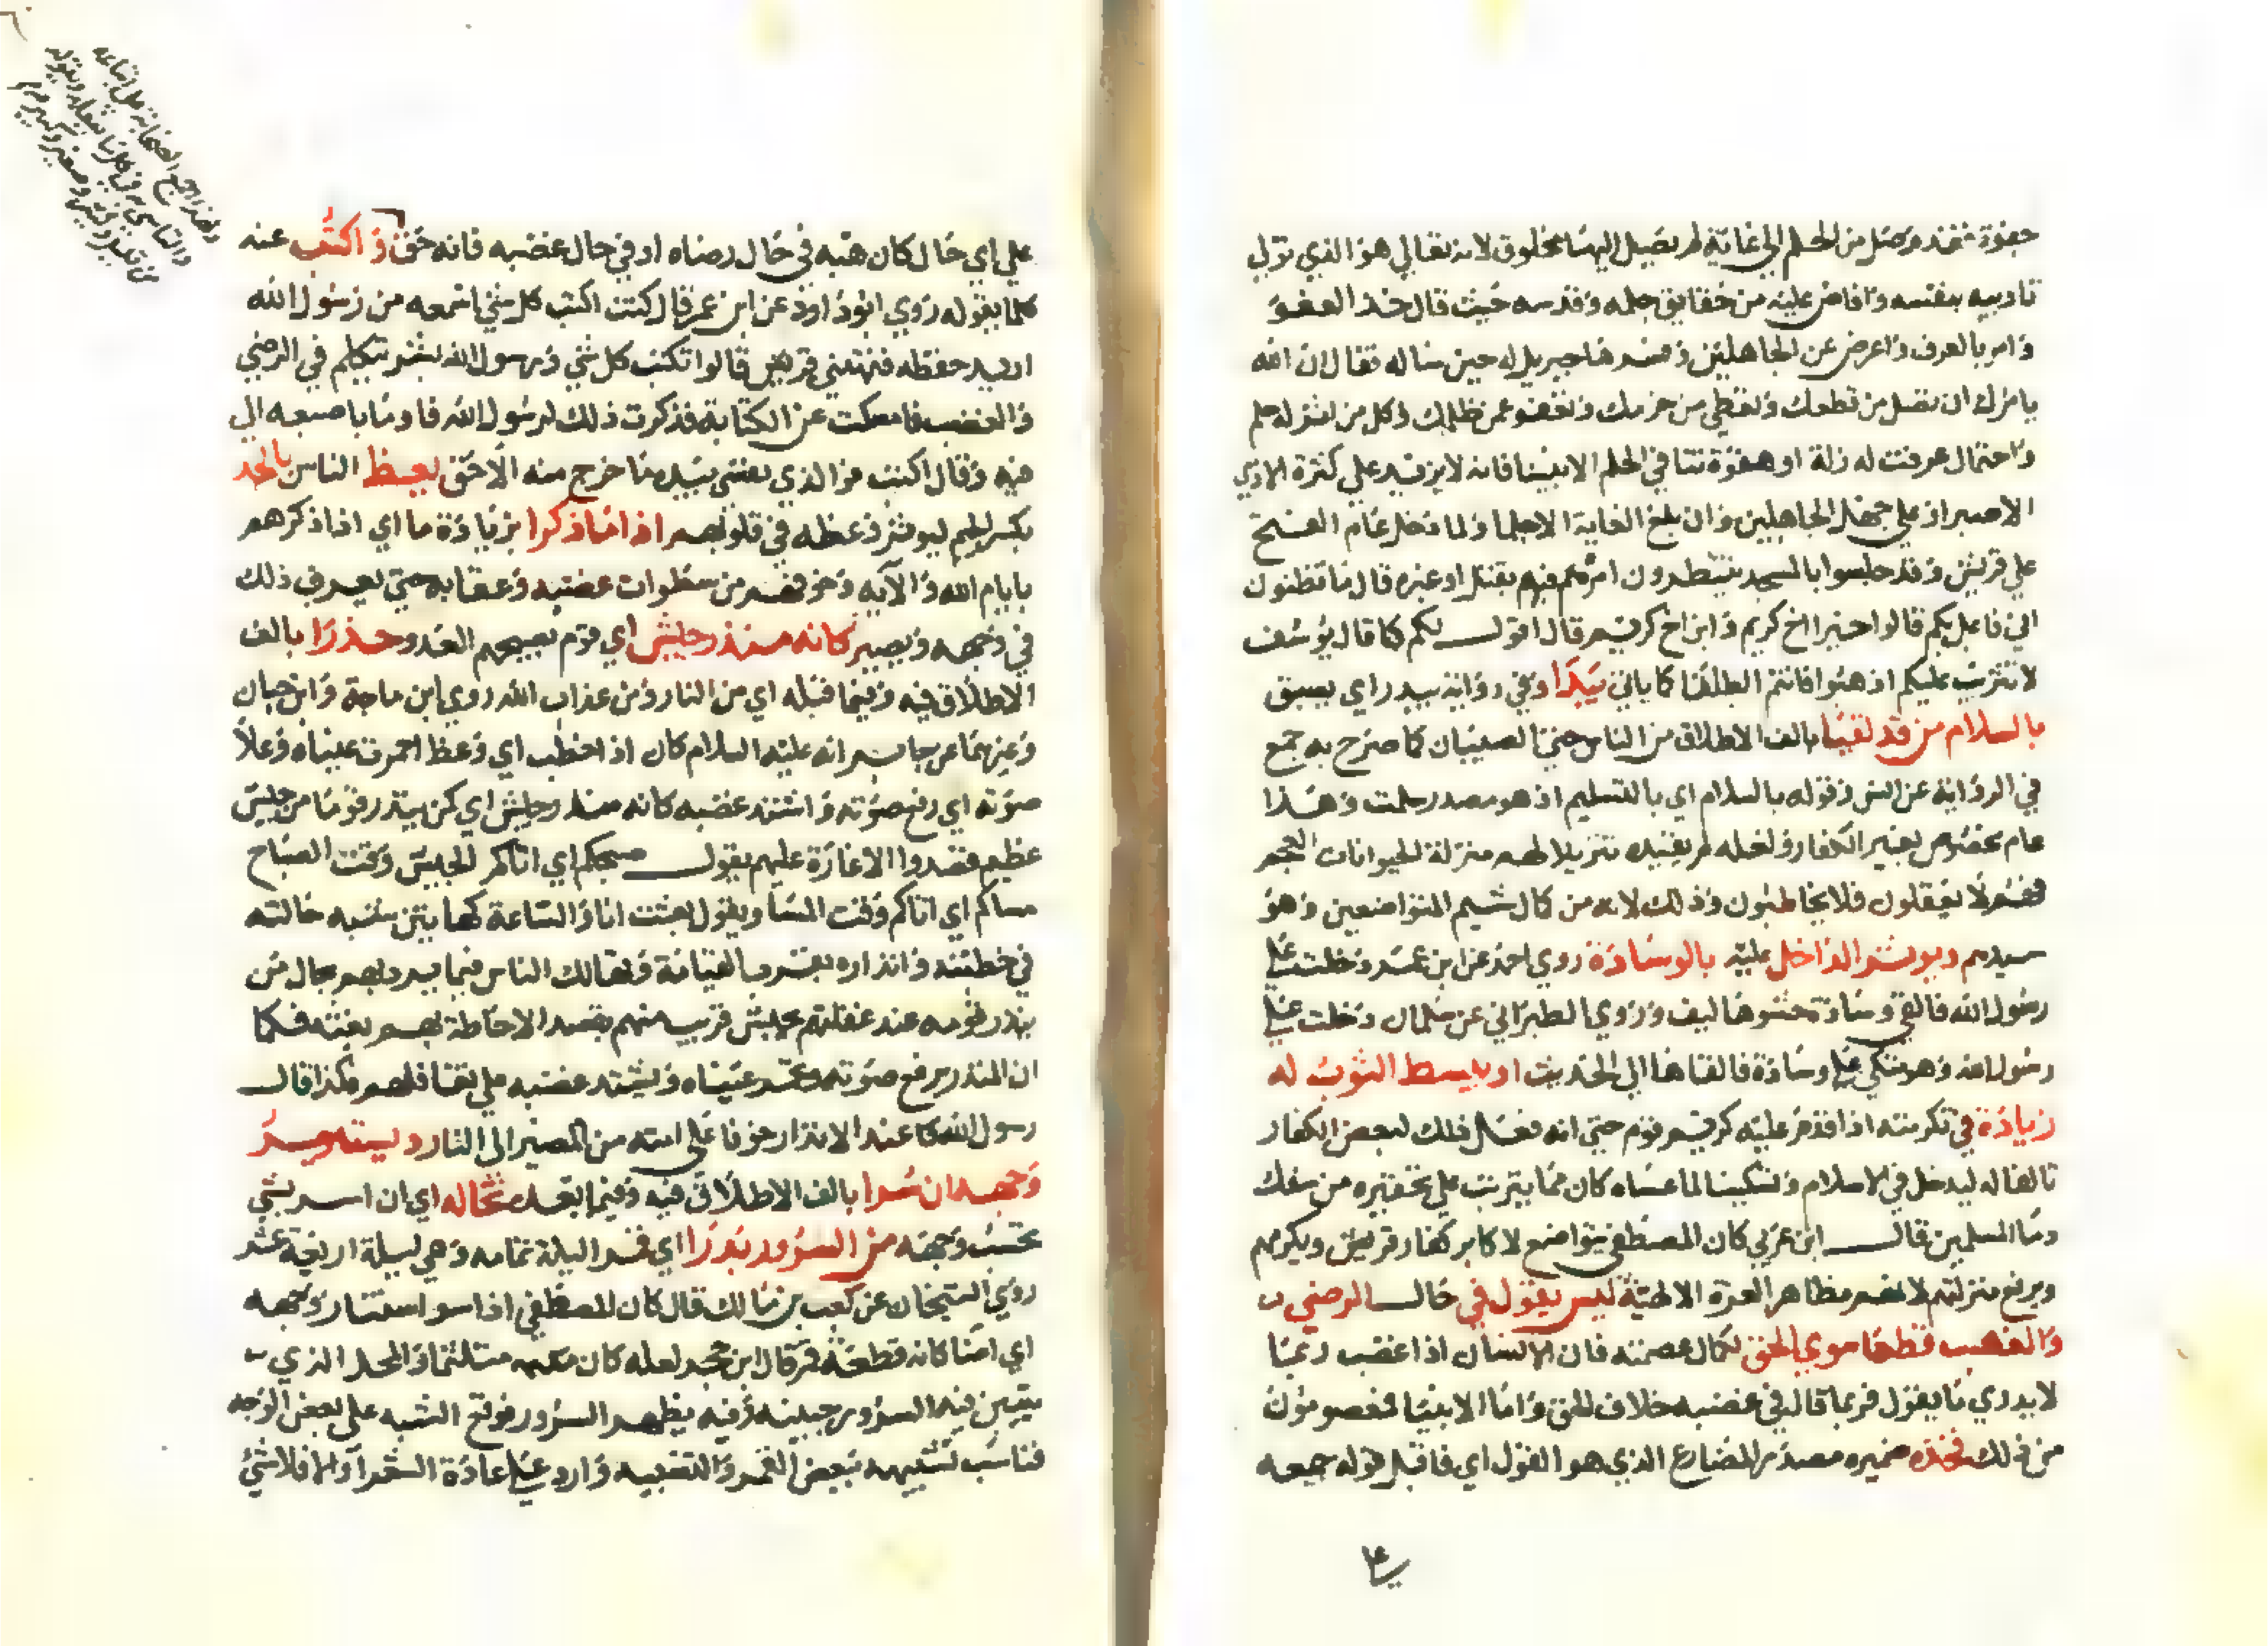 جفوة فمنه وصل من الحلم الي غاية لم يصل اليها مخلوق لانه تعالي هو الذي تولي
تاديبه بنفسه وافاض عليه من حقايق حلمه وقدسه حيث قال خذ العفو
وامر بالعرف واعرض عن الجاهلين وفسرها جبريل له حين ساله فقال ان الله
يامرك ان تصل من قطعك وتعطي من حرمك وتعفو عمن ظلمك وكل من له حلم
واحتمال عرفت له زلة او هفوة تنافي الحلم الا نبينا فانه لا يزيد علي كثرة الاذي
الا صبرا وعلي جهل الجاهلين وان بلغ الغاية الا حلما ولما دخل عام الفتح
علي قريش وقد جلسوا بالمسجد ينتظرون امره فيهم بقتل او غيره قال ما تظنون
اني فاعل بكم قالوا خيرا اخ كريم وابن اخ كريم قال اقول لكم كما قال يوسف
لا تثريب عليكم اذهبوا فانتم الطلقا كما ياتي يبدا وفي رواية يبدر اي يسبق
بالسلام من قد لقيا بالف الاطلاق من الناس حتي الصبيان كما صرح به جمع
في الرواية عن انس وقوله بالسلام اي بالتسليم اذ هو مصدر سلمت وهذا
عام مخصوص بغير الكفار ولعله لم يقيده تنزيلا لهم منزلة الحيوانات العجم
فهم لا يعقلون فلا يخاطبون وذلك لانه من كمال شيم المتواضعين وهو
سيدهم ويوثر الداخل عليه بالوسادة روي احمد عن ابن عمر دخلت علي
رسول الله فالقي وسادة حشوها ليف وروي الطبراني عن سلمان دخلت علي
رسول الله وهو متكي علي وسادة فالقاها الي الحديث او يبسط الثوب له
زيادة في تكرمته اذا قدم عليه كريم قوم حتي انه فعل ذلك لبعض الكفار
تالفا له ليدخل في الاسلام وتسكينا لما عساه كان مما يترتب علي تحقيره من سفك
دما المسلمين قال ابن عربي كان المصطفي يتواضع لاكابر كفار قريش ويكرمهم
ويرفع منزلتهم لانهم مظاهر العزة الالهية ليس يقول في حال الرضي
والغضب قطعا سوي الحق لكمال عصمته فان الانسان اذا غضب ربما
لا يدري ما يقول فربما قال في غضبه خلاف الحق واما الانبيا فمعصومون
من ذلك فخذه ضميره مصدر المضارع الذي هو القول اي فاقبل قوله جميعه
علي
علي اي حال كان هبه في حال رضاه او في حال غضبه فانه حق واكتب عنه
كلما يقوله روي ابو داود عن ابن عمر قال كنت اكتب كل شي اسمعه من رسول الله
اريد حفظه فنهتني قريش قالوا تكتب كل شي ورسول الله بشر يتكلم في الرضي
والغضب فامسكت عن الكتابة فذكرت ذلك لرسول الله فاوما باصبعه الي
فيه وقال اكتب فو الذي بعثني بيده ما خرج منه الا حق يعظ الناس بالجد
بكسر الجيم ليوثر وعظه في قلوبهم اذا ما ذكرا بزيادة ما اي اذا ذكرهم
بايام الله والآيه وخوفهم من سطوات غضبه وعقابه حتي يعرف ذلك
في وجهه ويصير كانه منذر جيش اي قوم يصبحهم العدو حذرا بالف
الاطلاق فيه وفيما قبله اي من النار ومن عذاب الله روي ابن ماجة وابن حبان
وغيرهما عن جابر انه عليه السلام كان اذا خطب اي وعظ احمرت عيناه وعلا
صوته اي رفع صوته واشتد غضبه كانه منذر جيش اي كمن ينذر قوما من جيش
عظيم قصدوا الاغارة عليهم يقول صبحكم اي اتاكم الجيش وقت الصباح
مساكم اي اتاكم وقت المسا ويقول بعثت انا والساعة كهاتين شبه حالته
في خطبته وانذاره بقرب القيامة وتهالك الناس فيما يرديهم بحال من
ينذر قومه عند غفلتهم بجيش قريب منهم يقصد الاحاطة بهم بغتة فكما
ان المنذر يرفع صوته وتحمر عيناه ويشتد غضبه علي تغافلهم فكذا قال
رسول الله كما عند الانذار خوفا علي امته من المصير الي النار ويستنير
وجهه ان سرا بالف الاطلاق فيه وفيما بعد تخاله اي ان اسر بشي
تحسب وجهه من السرور بدرا اي قمر اليلة تمامه وهي ليلة اربعة عشر
روي الشيخان عن كعب بن مالك قال كان المصطفي اذا سر استنار وجهه
اي اضا كانه قطعة قمر قال ابن حجر لعله كان متلثما والمحل الذي
يتبين فيه السرور جبينه وفيه يظهر السرور فوقع الشبه علي بعض الوجه
فناسب تشبيهه ببعض القمر والتشبيه وارد علي عادة الشعرا والا فلا شي